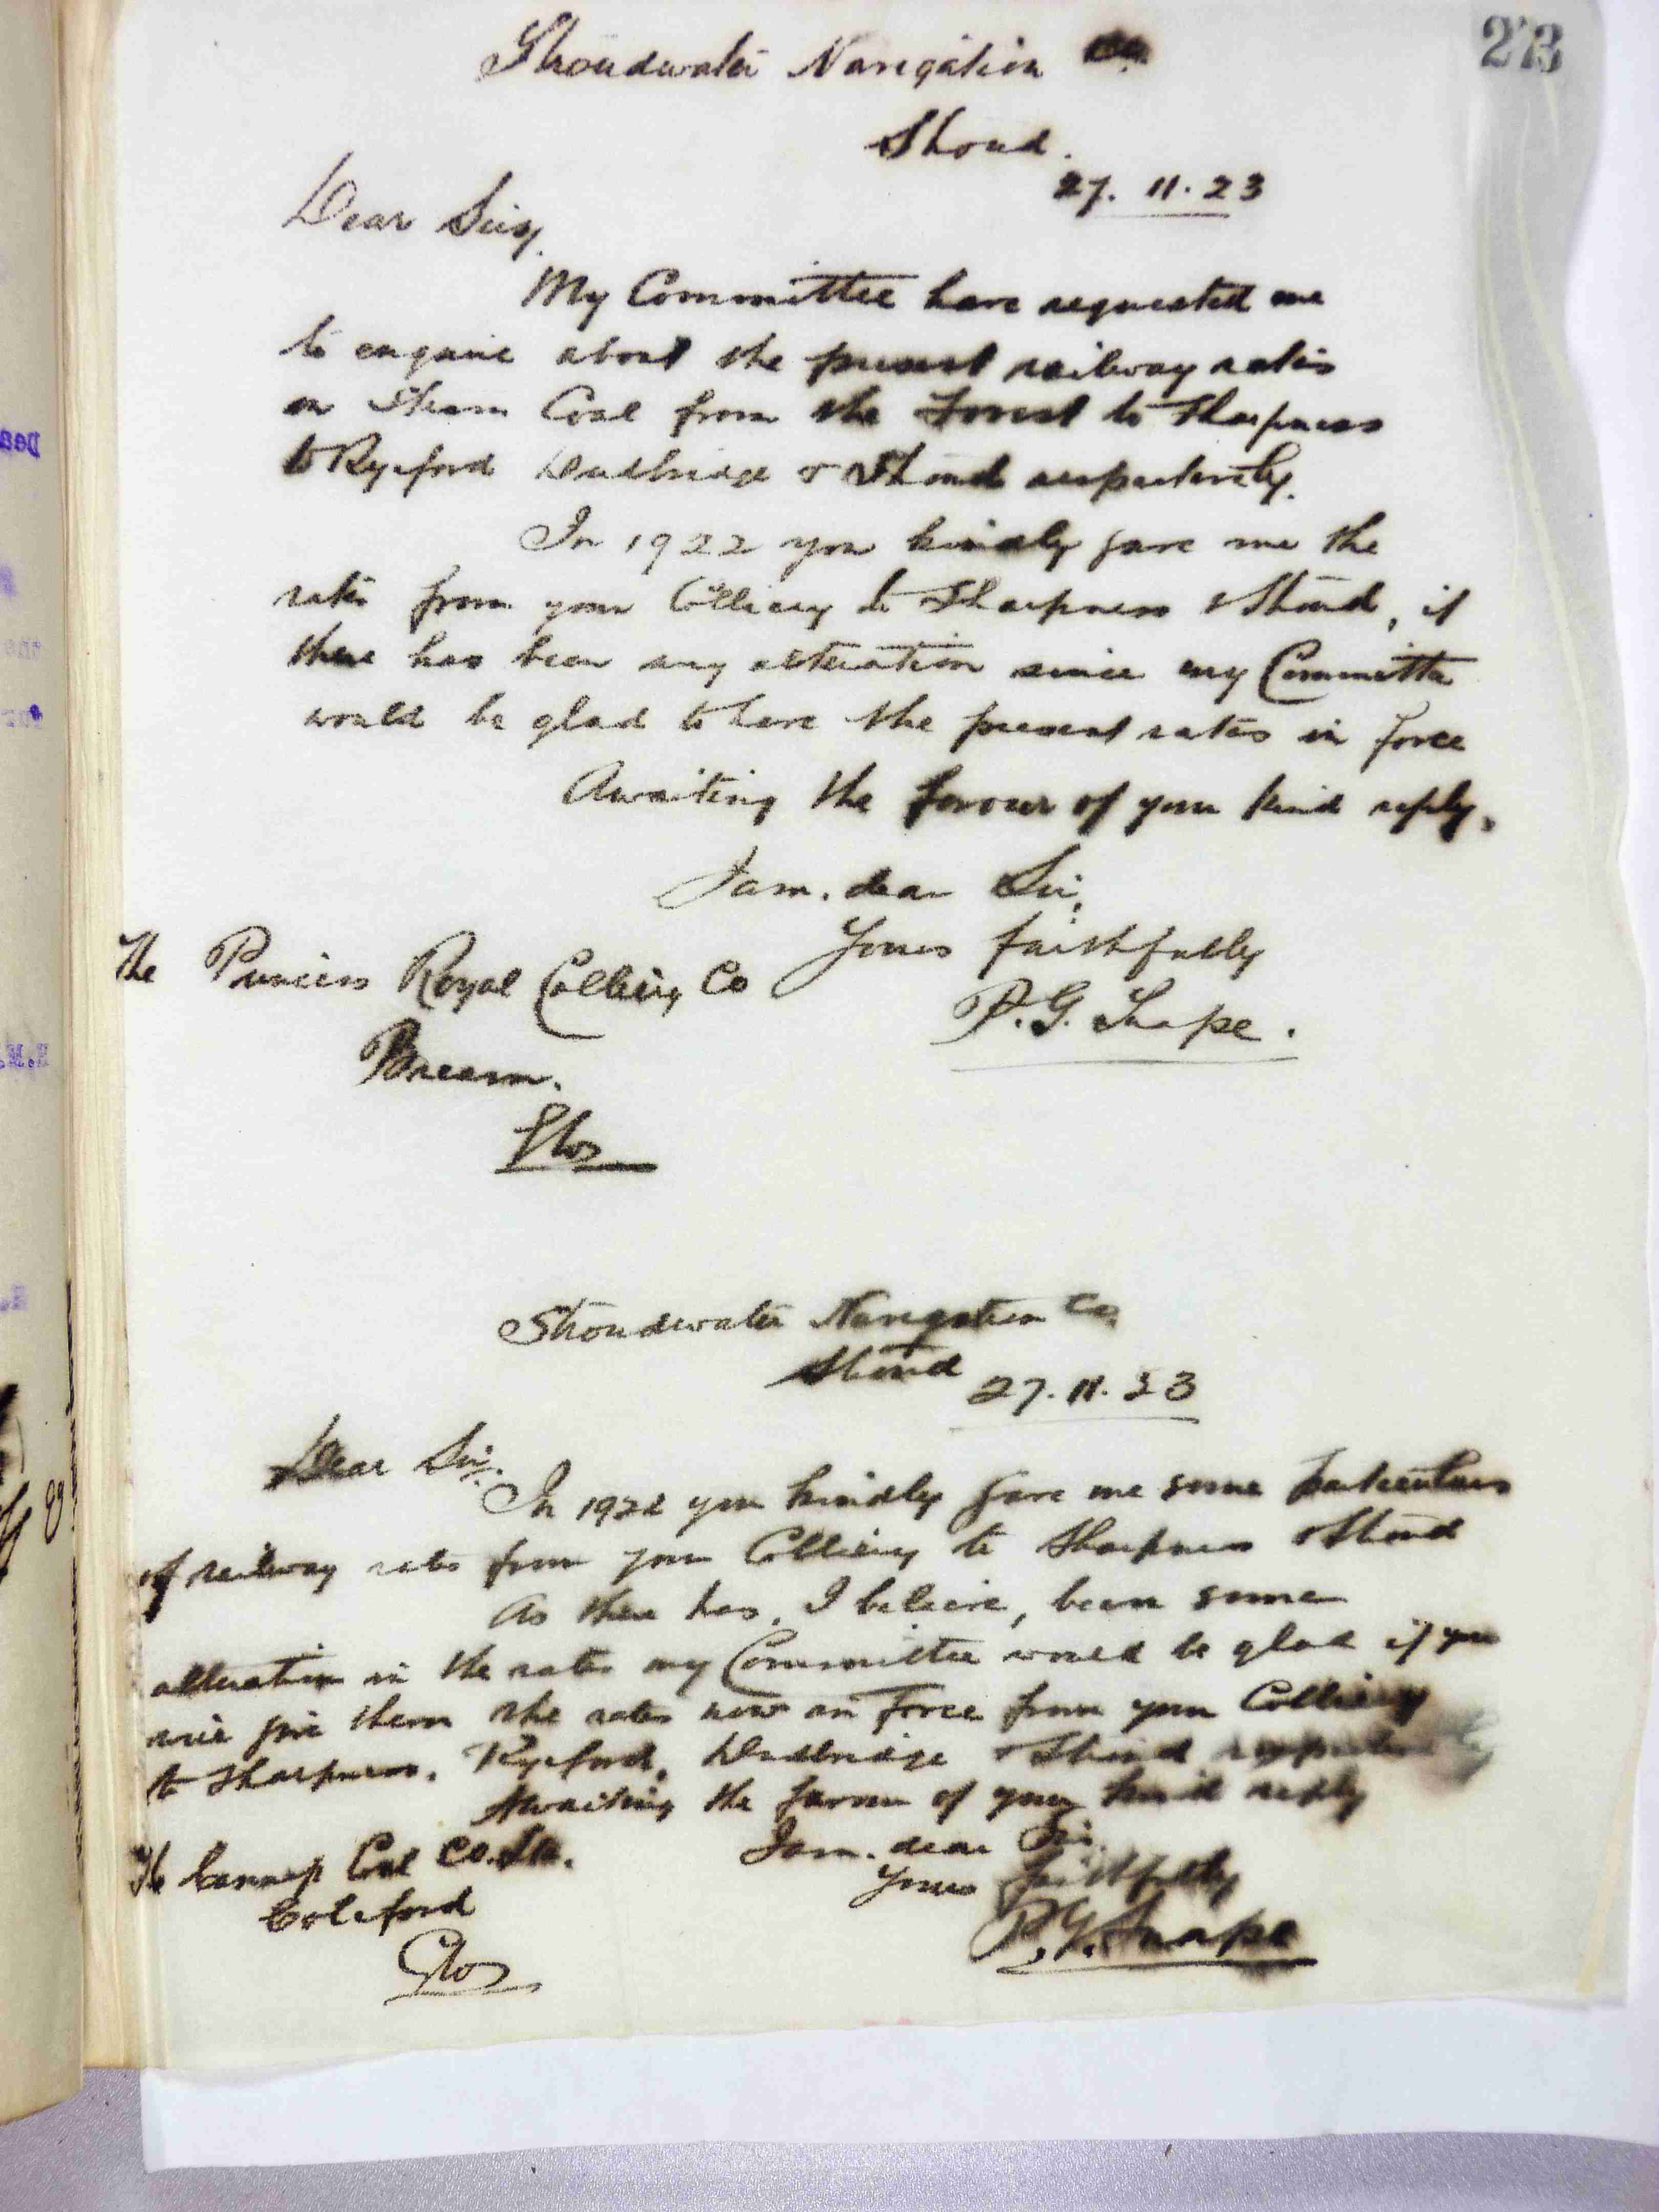 273
Stroudwater Navigation Co.
Stroud.
27. 11. 23
Dear Sirs,
My Committee have requested me
to enquire about the present railway rates
on Steam Coal from the Forest to Sharpness
to Ryeford Dudbridge & Stroud respectively.
In 1922 you kindly gave me the
rates from your Colliery to Sharpness & Stroud, if
there has been any alteration since my Committee
would be glad to have the present rates in force
Awaiting the favour of your kind reply,
I am, dear Sir,
Yours faithfully
P.G. Snape.
The Princess Royal Colliery Co
Bream.
Glos
Stroudwater Navigation Co.
Stroud 27. 11. 23
Dear Sir,
In 1922 you kindly gave me some particulars
of railway rates from your Colliery to Sharpness & Stroud
As there has, I believe, been some
alteration in the rates my Committee would be glad if you
will give them the rates now in force from your Colliery
to Sharpness, Ryeford, Dudbridge & Stroud respectively
Awaiting the favour of your kind reply
I am, dear Sir
Yours faithfully
P.G. Snape
The Cannop Coal Co. Ltd.
Coleford
Glos